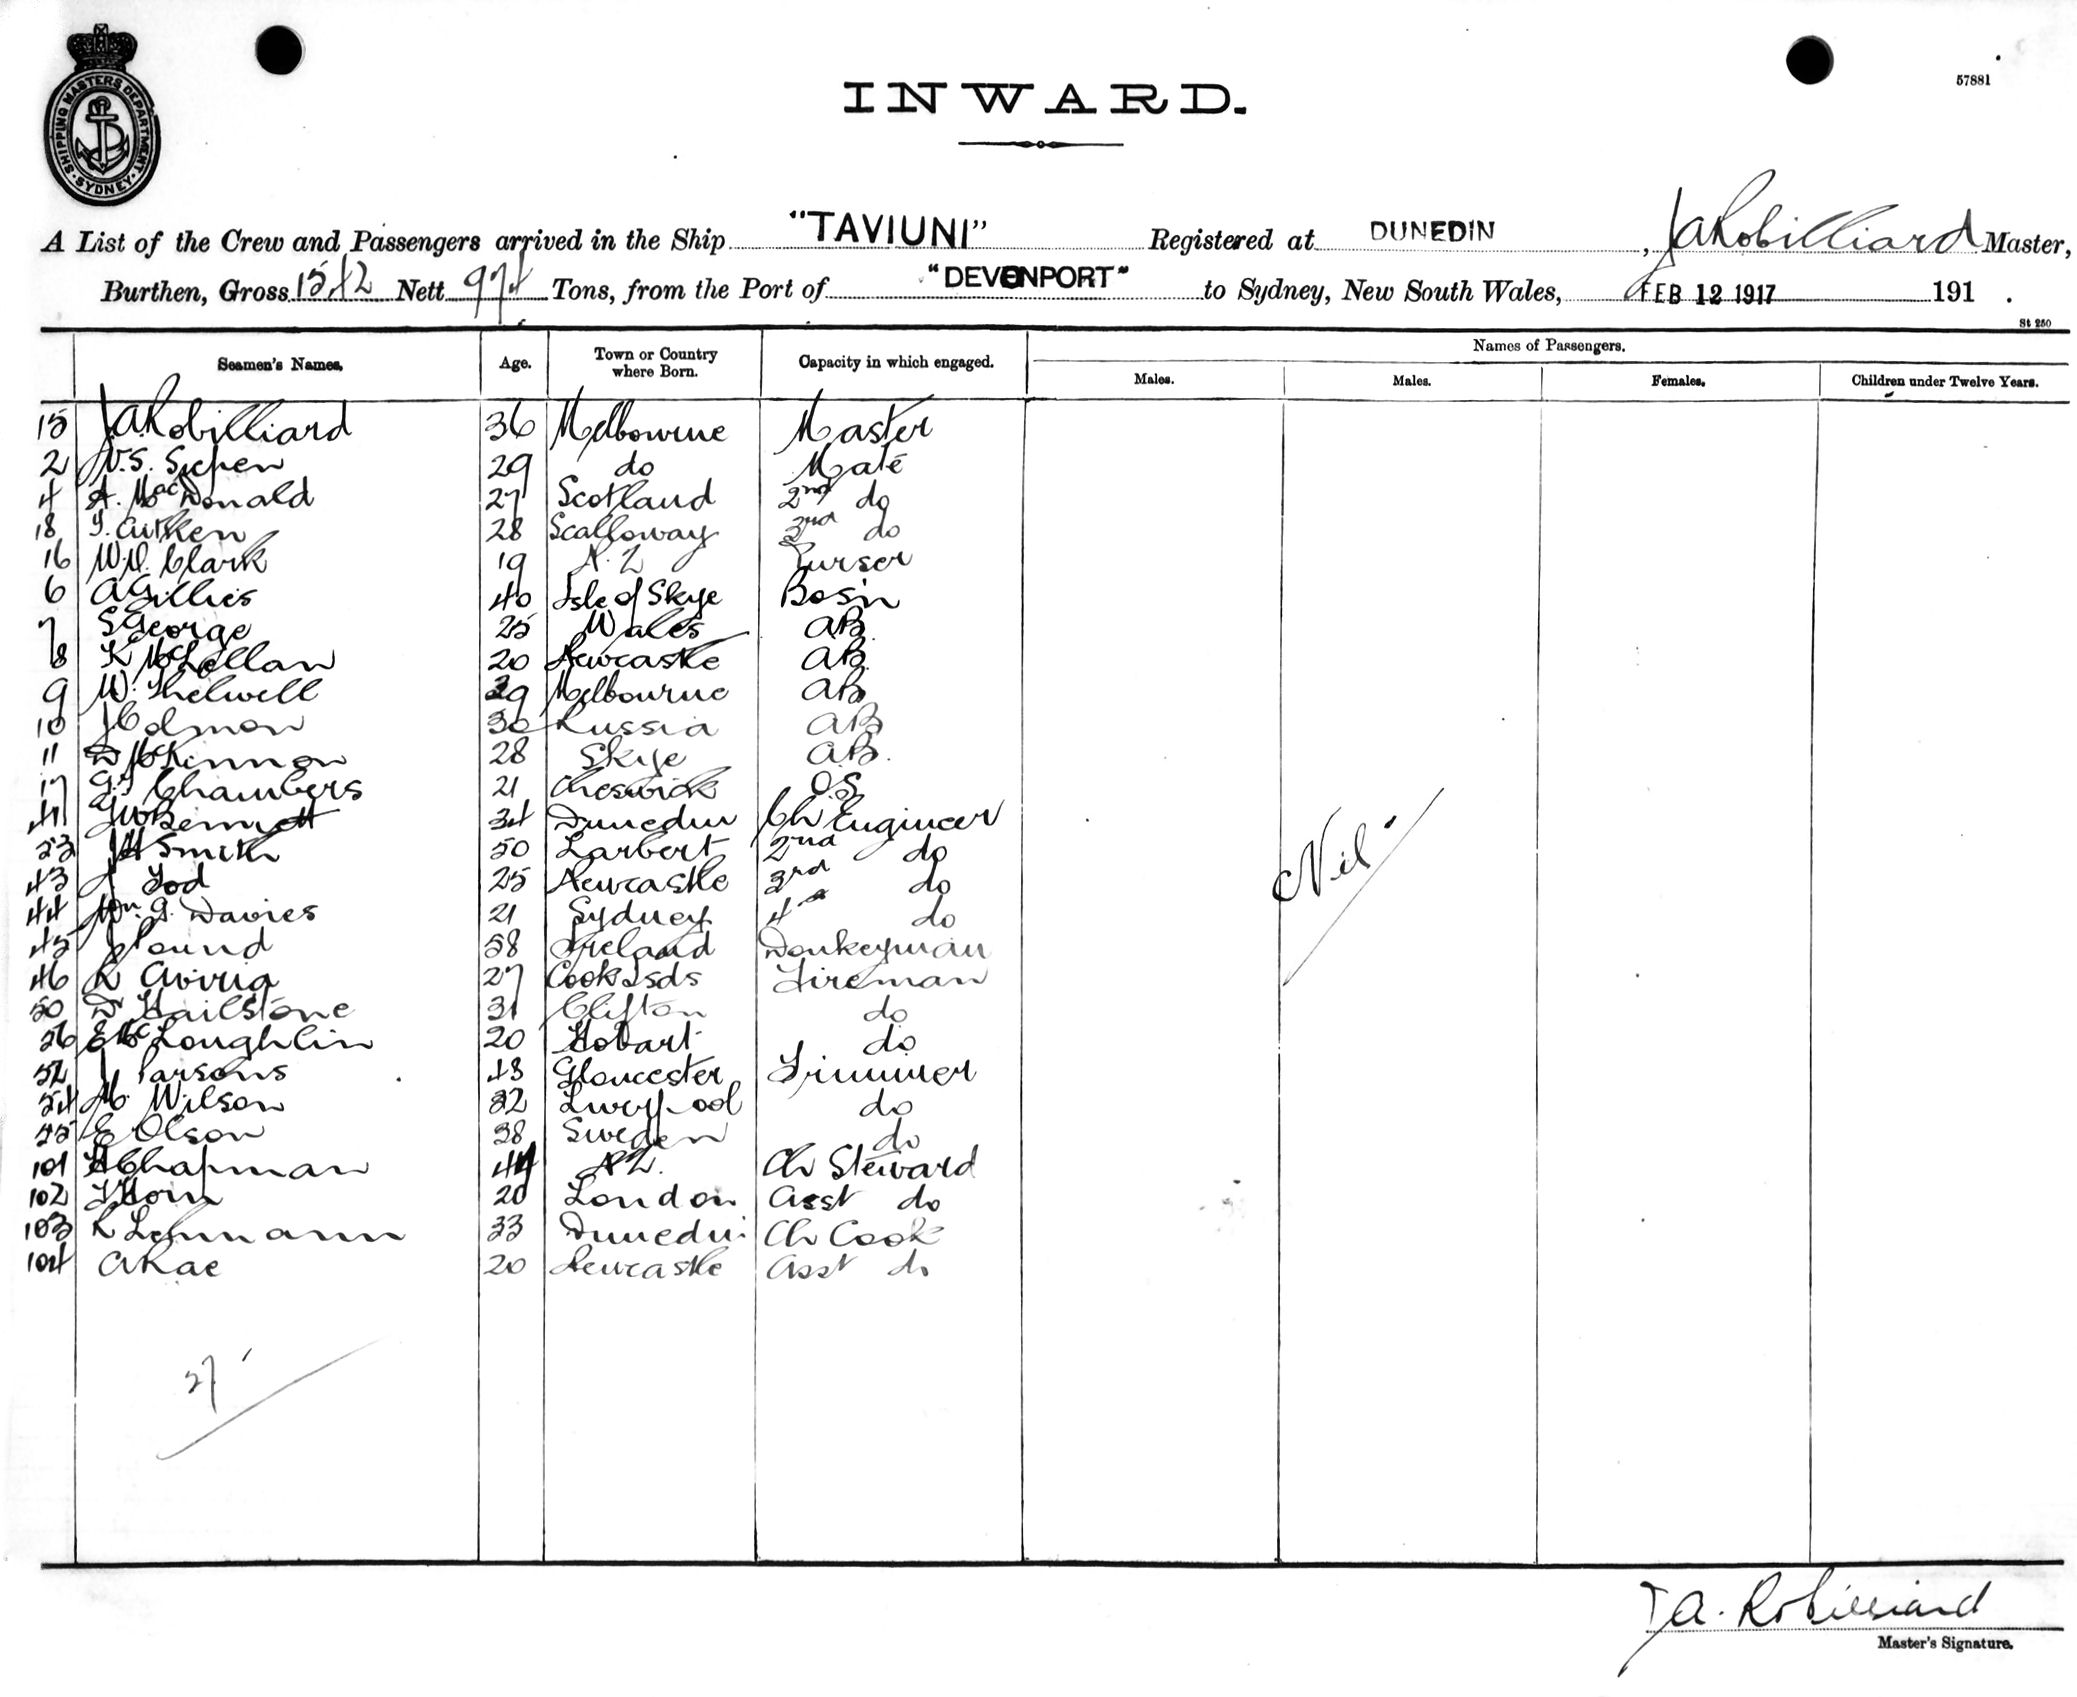 SHIPPING MASTERS DEPARTMENT. SYDNEY.
57881
INWARD.
A List of the Crew and Passengers arrived in the Ship "TAVIUNI" Registered at DUNEDIN, JA Robilliard Master,
Burthen, Gross 1542 Nett 974 Tons, from the Port of "DEVONPORT" to Sydney, New South Wales, FEB 12 1917 191 .
St 250
Seamen's Names. Age. Town or Country where Born. Capacity in which engaged. Names of Passengers.
Males. Males. Females. Children under Twelve Years.
15 JA Robilliard 36 Melbourne Master
2 29 do Mate
4 A. MacDonald 27 Scotland 2nd do
18 J. Aitken 28 Scalloway 3rd do
16 W.D. Clark 19 N.Z Purser
6 A Gillies 40 Isle of Skye Bos'n
7 S George 25 Wales AB
8 K McLellan 20 Newcastle AB
9 W. Thelwell 29 Melbourne AB
10 J Colmon 30 Russia AB
11 D McKinnon 28 Skye AB.
17 Chambers 21 Cheswick O.S
41 Bennett 34 Dunedin Ch Engineer
JH Smith 50 Larbert 2nd do
43 J Tod 25 Newcastle 3rd do
44 Wm. G. Davies 21 Sydney 4th do
45 J Pound 58 Ireland Donkeyman
46 27 Cook Isds Fireman
50 D Hailstone 31 Clifton do
56 E McLoughlin 20 Hobart do
52 J Parsons 48 Gloucester Trimmer
54 M. Wilson 32 Liverpool do
55 E Olson 38 Sweden do
101 H Chapman 44 N.Z. Ch Steward
102 T Horn 20 London Asst do
103 R Lehmann 33 Dunedin Ch Cook
104 A Rae 20 Newcastle Asst do
Nil
27
JA. Robilliard
Master's Signature.